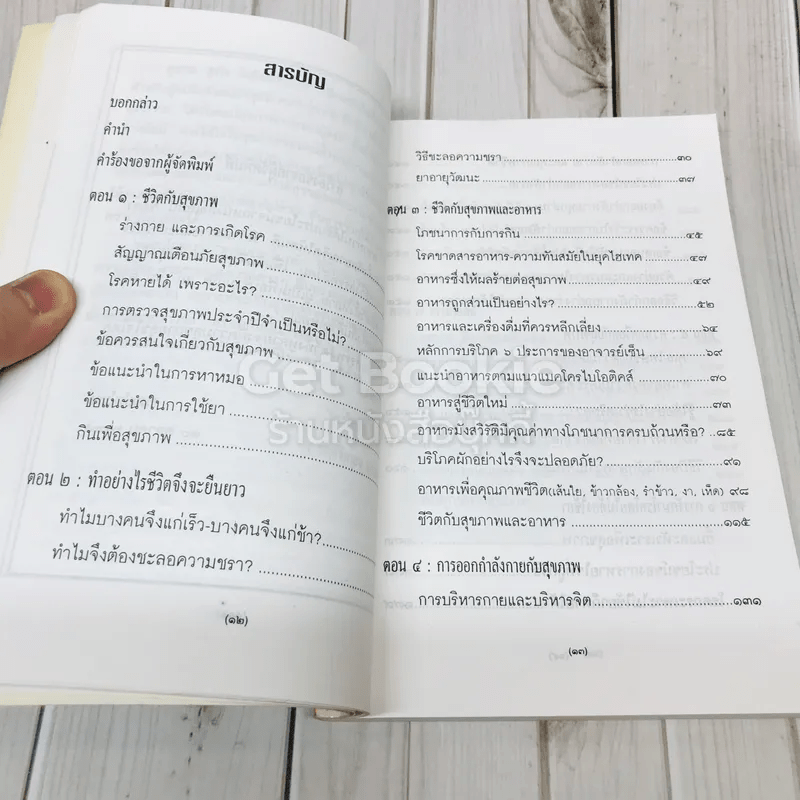 สารบัญ
บอกกล่าว
คำนำ
คำร้องขอจากผู้จัดพิมพ์
ตอน ๑ : ชีวิตกับสุขภาพ
ร่างกาย และการเกิดโรค
สัญญาณเตือนภัยสุขภาพ
โรคหายได้ เพราะอะไร?
การตรวจสุขภาพประจำปีจำเป็นหรือไม่?
ข้อควรสนใจเกี่ยวกับสุขภาพ
ข้อแนะนำในการหาหมอ
ข้อแนะนำในการใช้ยา
กินเพื่อสุขภาพ
ตอน ๒ : ทำอย่างไรชีวิตจึงจะยืนยาว
ทำไมบางคนจึงแก่เร็ว-บางคนจึงแก่ช้า?
ทำไมจึงต้องชะลอความชรา?
(๑๒)
วิธีชะลอความชรา ๓๐
ยาอายุวัฒนะ ๓๗
ตอน ๓ : ชีวิตกับสุขภาพและอาหาร
โภชนาการกับการกิน ๔๕
โรคขาดสารอาหาร-ความทันสมัยในยุคไฮเทค ๔๗
อาหารซึ่งให้ผลร้ายต่อสุขภาพ ๔๙
อาหารถูกส่วนเป็นอย่างไร? ๕๒
อาหารและเครื่องดื่มที่ควรหลีกเลี่ยง ๖๔
หลักการบริโภค ๖ ประการของอาจารย์เซ็น ๖๙
แนะนำอาหารตามแนวแมคโครไบโอติคส์ ๗๐
อาหารสู่ชีวิตใหม่ ๗๓
อาหารมังสวิรัติมีคุณค่าทางโภชนาการครบถ้วนหรือ? ๘๕
บริโภคผักอย่างไรจึงจะปลอดภัย? ๙๑
อาหารเพื่อคุณภาพชีวิต(เส้นใย, ข้าวกล้อง, รำข้าว, งา, เห็ด) ๙๘
ชีวิตกับสุขภาพและอาหาร ๑๑๕
ตอน ๔ : การออกกำลังกายกับสุขภาพ
การบริหารกายและบริหารจิต ๑๓๑
(๑๓)
Get Bookie
ร้านหนังสือบุ๊คกี้